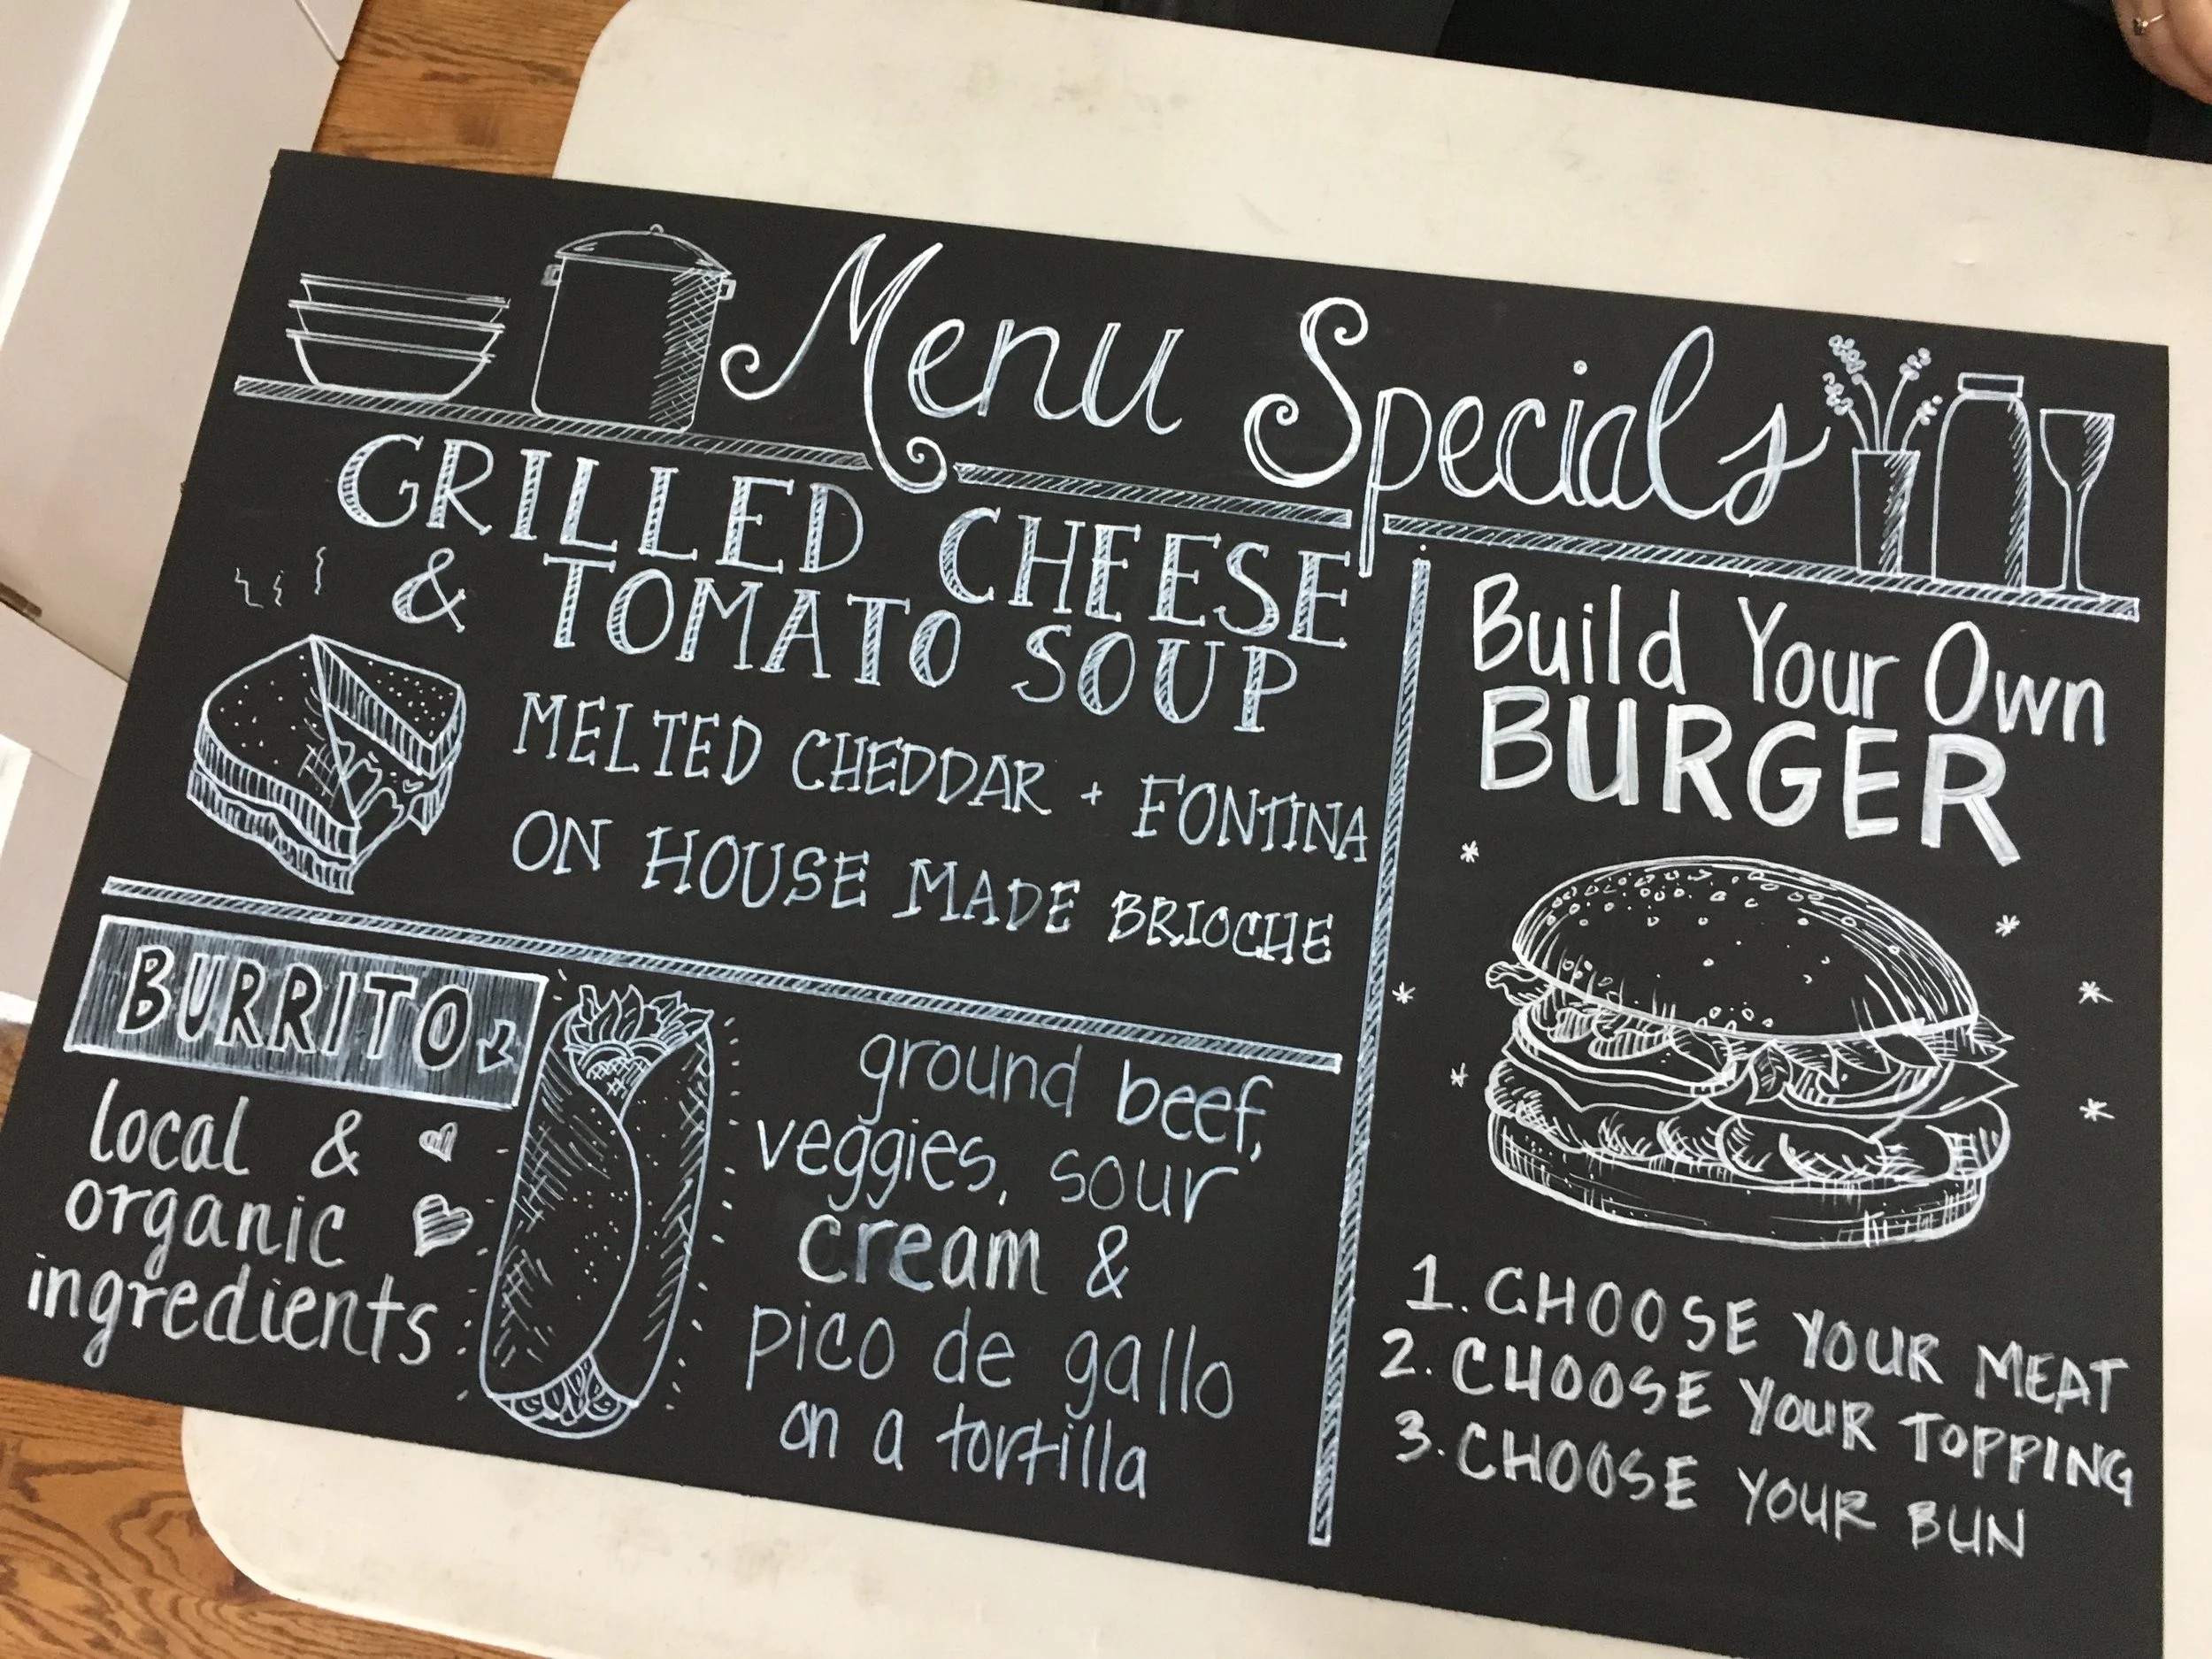 Menu Specials
GRILLED CHEESE
& TOMATO SOUP
MELTED CHEDDAR + FONTINA
ON HOUSE MADE BRIOCHE
BURRITO
local &
organic
ingredients
ground beef,
veggies, sour
cream &
pico de gallo
on a tortilla
Build Your Own
BURGER
1. CHOOSE YOUR MEAT
2. CHOOSE YOUR TOPPING
3. CHOOSE YOUR BUN